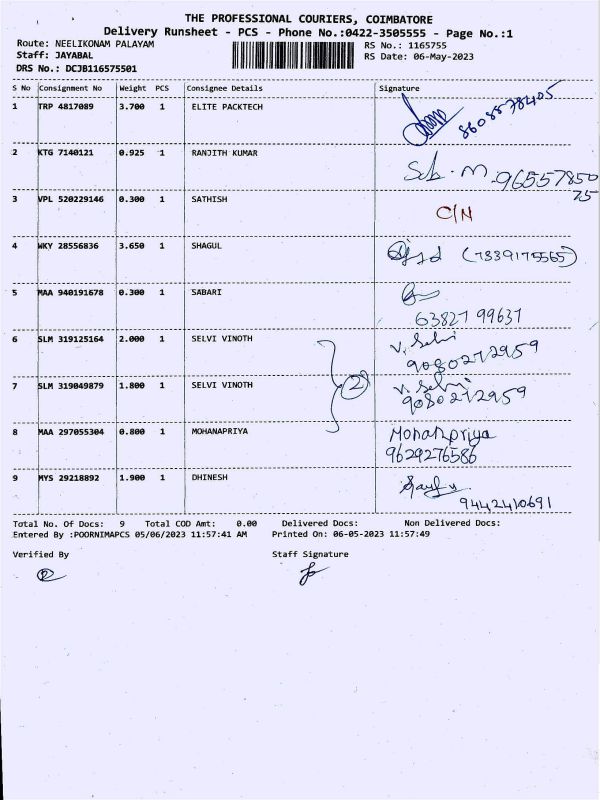 THE PROFESSIONAL COURIERS, COIMBATORE
Delivery Runsheet - PCS - Phone No.:0422-3505555 - Page No.:1
Route: NEELIKONAM PALAYAM
RS No.: 1165755
Staff: JAYABAL
RS Date: 06-May-2023
DRS No.: DCJB116575501
S No Consignment No Weight PCS Consignee Details Signature
1 TRP 4817089 3.700 1 ELITE PACKTECH
8608878405
2 KTG 7140121 0.925 1 RANJITH KUMAR
9655785075
3 VPL 520229146 0.300 1 SATHISH C/N
4 WKY 28556836 3.650 1 SHAGUL (7839175565)
5 MAA 940191678 0.300 1 SABARI
63827 99637
6 SLM 319125164 2.000 1 SELVI VINOTH V. Selvi
9080272959
2
7 SLM 319049879 1.800 1 SELVI VINOTH V. Selvi
9080272959
8 MAA 297055304 0.800 1 MOHANAPRIYA Mohanpriya
9629276586
9 MYS 29218892 1.900 1 DHINESH
9442410691
Total No. Of Docs: 9 Total COD Amt: 0.00 Delivered Docs: Non Delivered Docs:
Entered By :POORNIMAPCS 05/06/2023 11:57:41 AM Printed On: 06-05-2023 11:57:49
Verified By Staff Signature